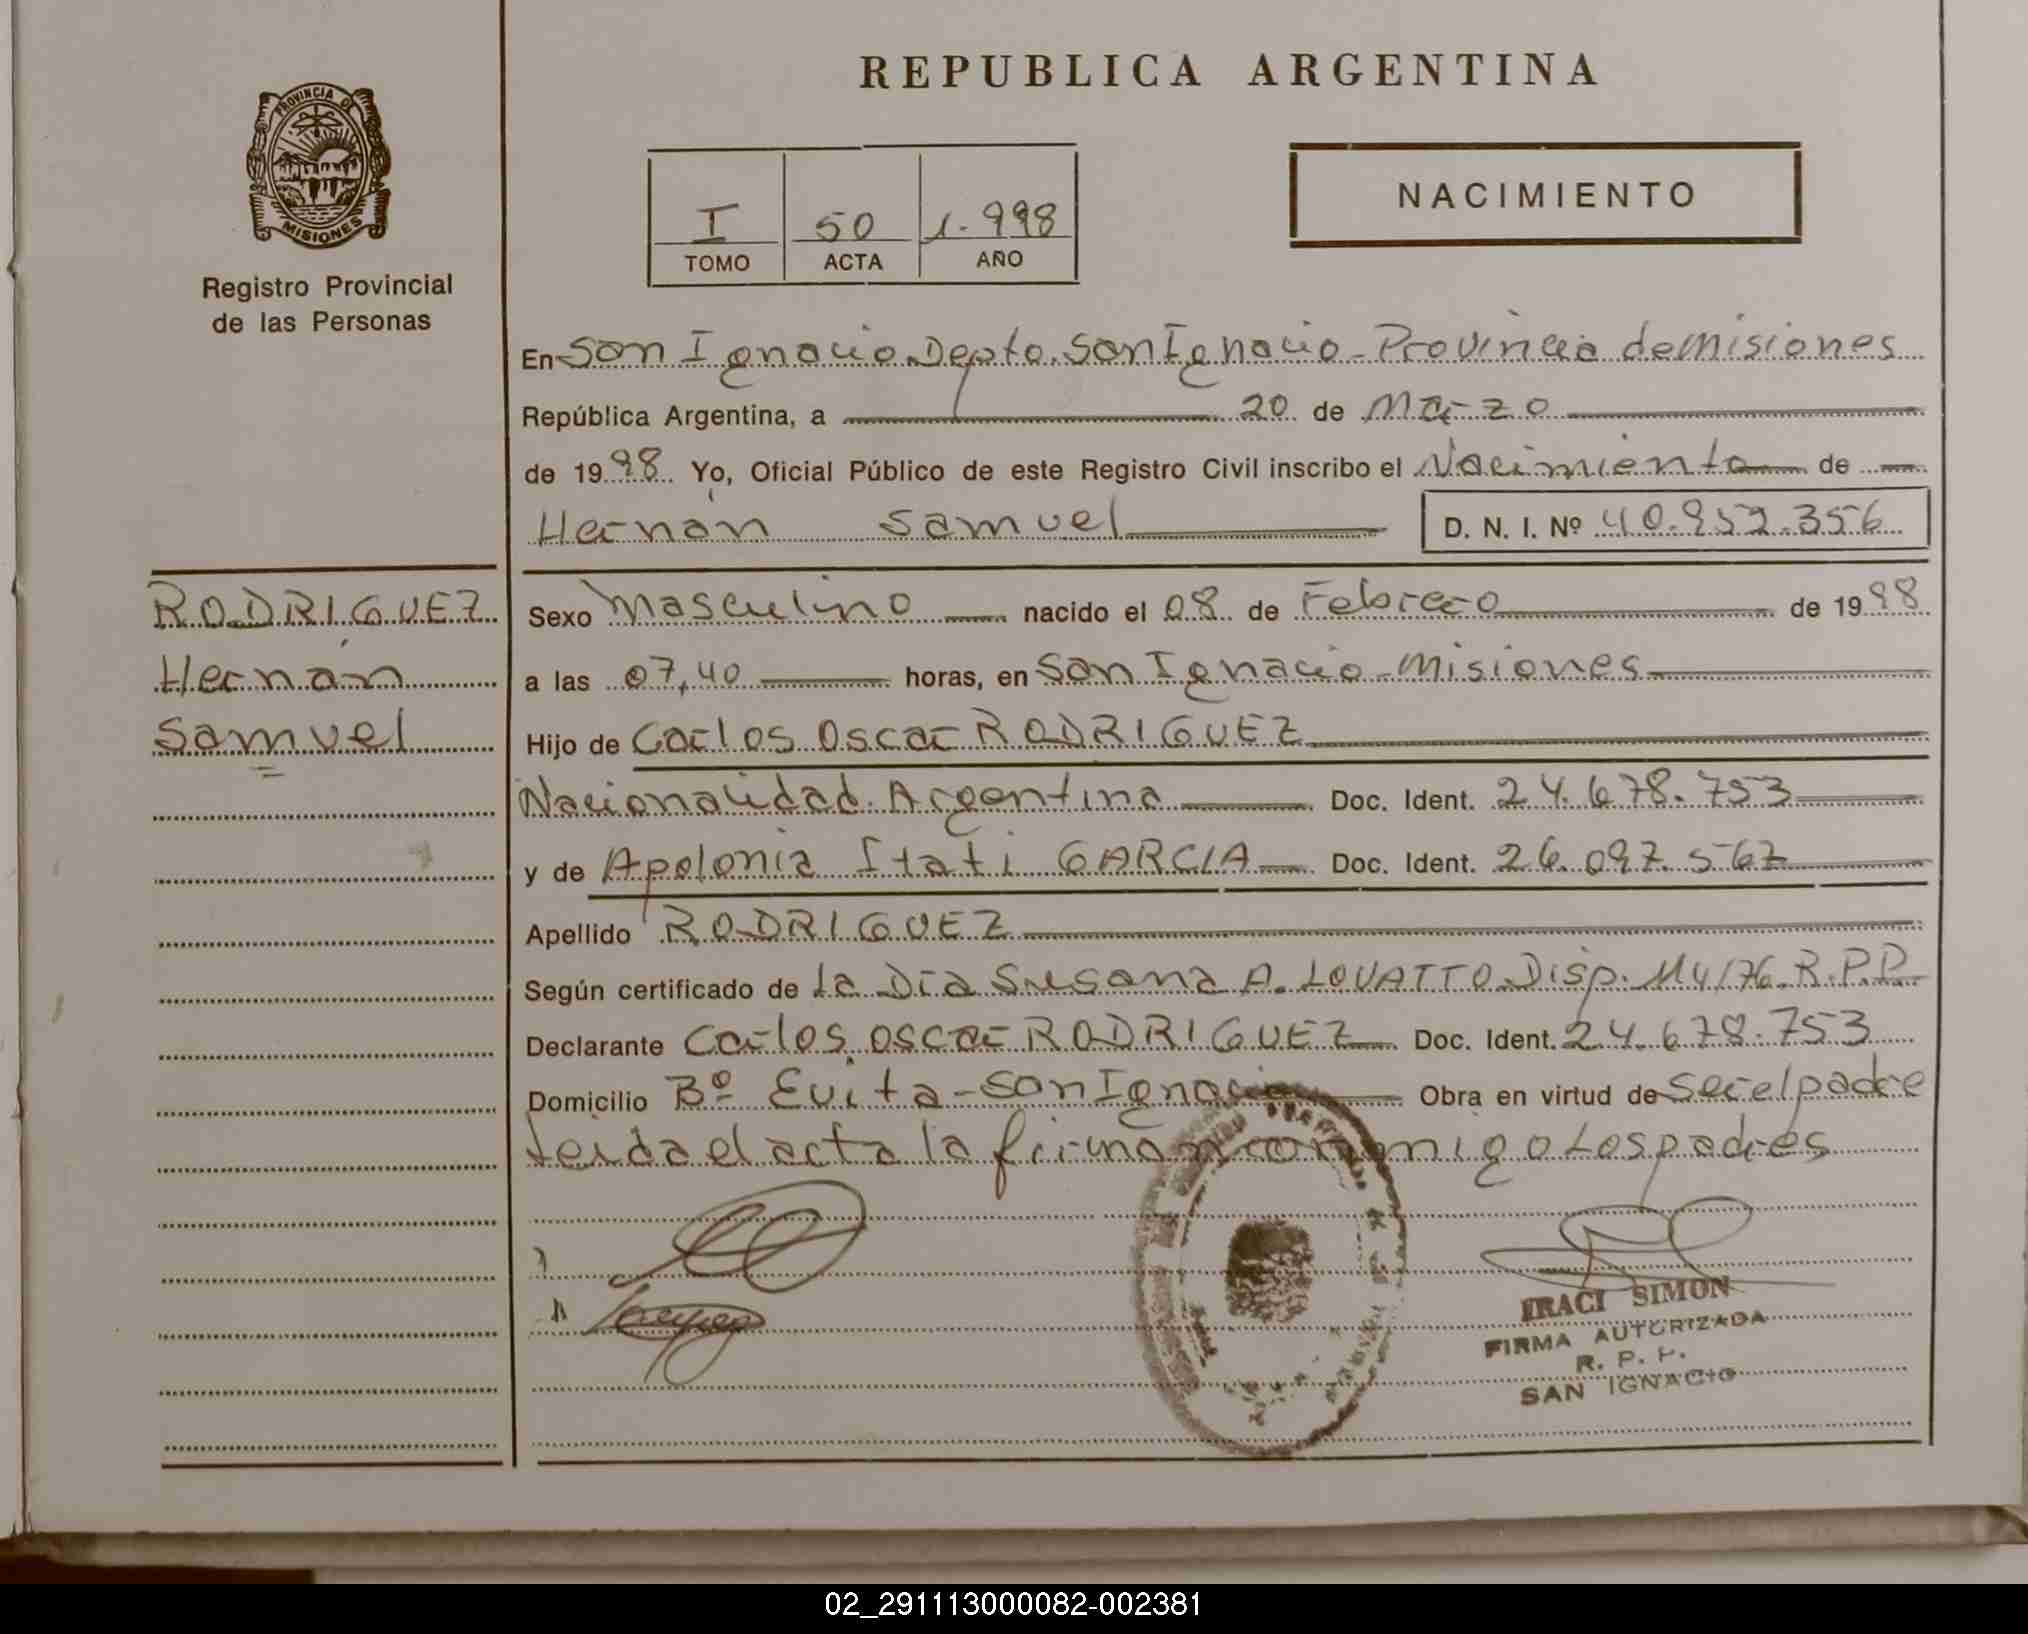 REPUBLICA ARGENTINA
PROVINCIA D
MISIONES
Registro Provincial
de las Personas
I 50 1.998
TOMO ACTA AÑO
NACIMIENTO
En San Ignacio Depto. San Ignacio - Provincia de Misiones
República Argentina, a 20 de Marzo
de 1998 Yo, Oficial Público de este Registro Civil inscribo el Nacimiento de
Hernán Samuel D. N. I. Nº 40.952.356
RODRIGUEZ
Hernán
Samuel
Sexo Masculino nacido el 08 de Febrero de 1998
a las 07,40 horas, en San Ignacio - Misiones
Hijo de Carlos Oscar RODRIGUEZ
Nacionalidad Argentina Doc. Ident. 24.678.753
y de Apolonia Itati GARCIA Doc. Ident. 26.097.567
Apellido RODRIGUEZ
Según certificado de La Dra Susana A. LOVATTO. Disp. 114/76. R.P.P.
Declarante Carlos Oscar RODRIGUEZ Doc. Ident. 24.678.753
Domicilio Bº Evita - San Ignacio Obra en virtud de ser el padre
Leida el acta la firman conmigo Los padres
IRACI SIMON
FIRMA AUTORIZADA
R. P. P.
SAN IGNACIO
02_291113000082-002381